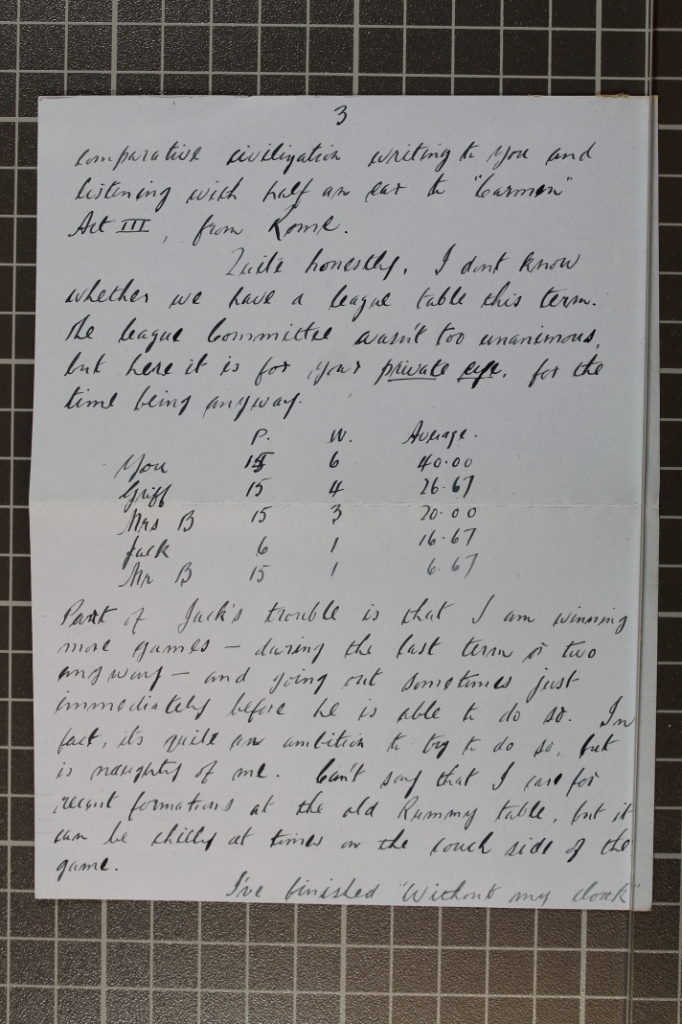 3
comparative civilization writing to you and
listening with half an ear to "Carmen"
Act III, from Rome.
Quite honestly, I don't know
whether we have a league table this term.
The League Committee wasn't too unanimous,
but here it is for your private eye, for the
time being anyway.
P. W. Average.
You 15 6 40.00
Griff 15 4 26.67
Mrs B 15 3 20.00
Jack 6 1 16.67
Mr B 15 1 6.67
Part of Jack's trouble is that I am winning
more games - during the last term or two
anyway - and going out sometimes just
immediately before he is able to do so. In
fact, it's quite an ambition to try to do so, but
is naughty of me. Can't say that I care for
recent formations at the old Rummy table, but it
can be chilly at times on the couch side of the
game.
I've finished "Without my cloak"